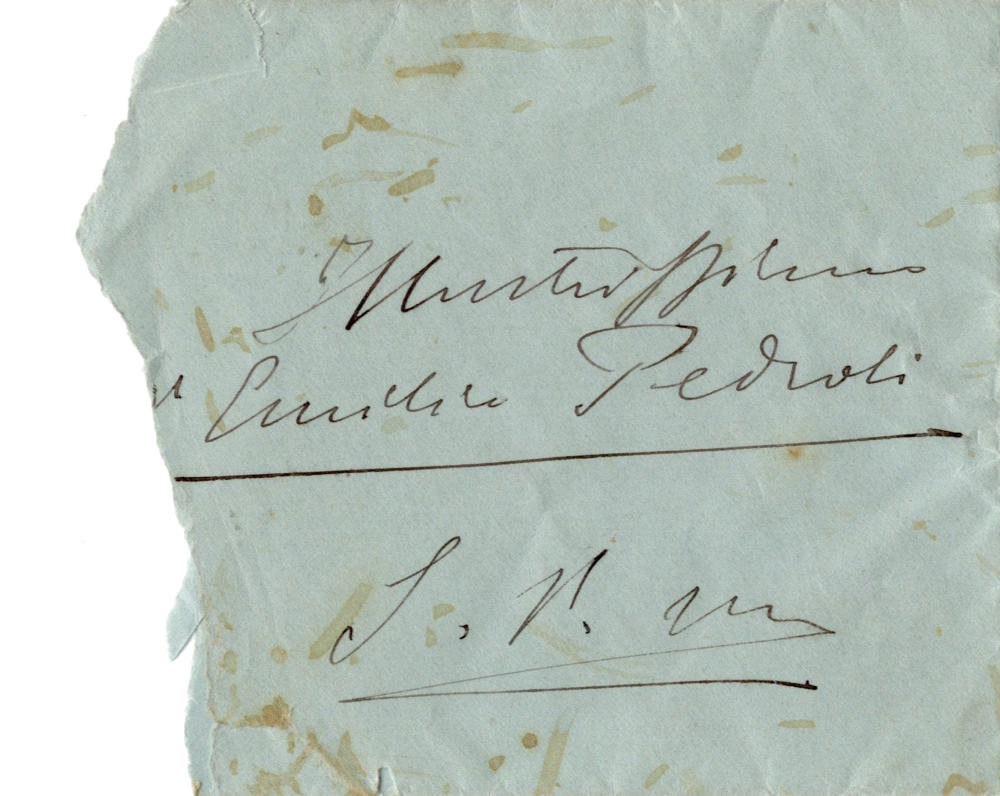 Illustrissimo
Emilio Pedroli
S. P. M